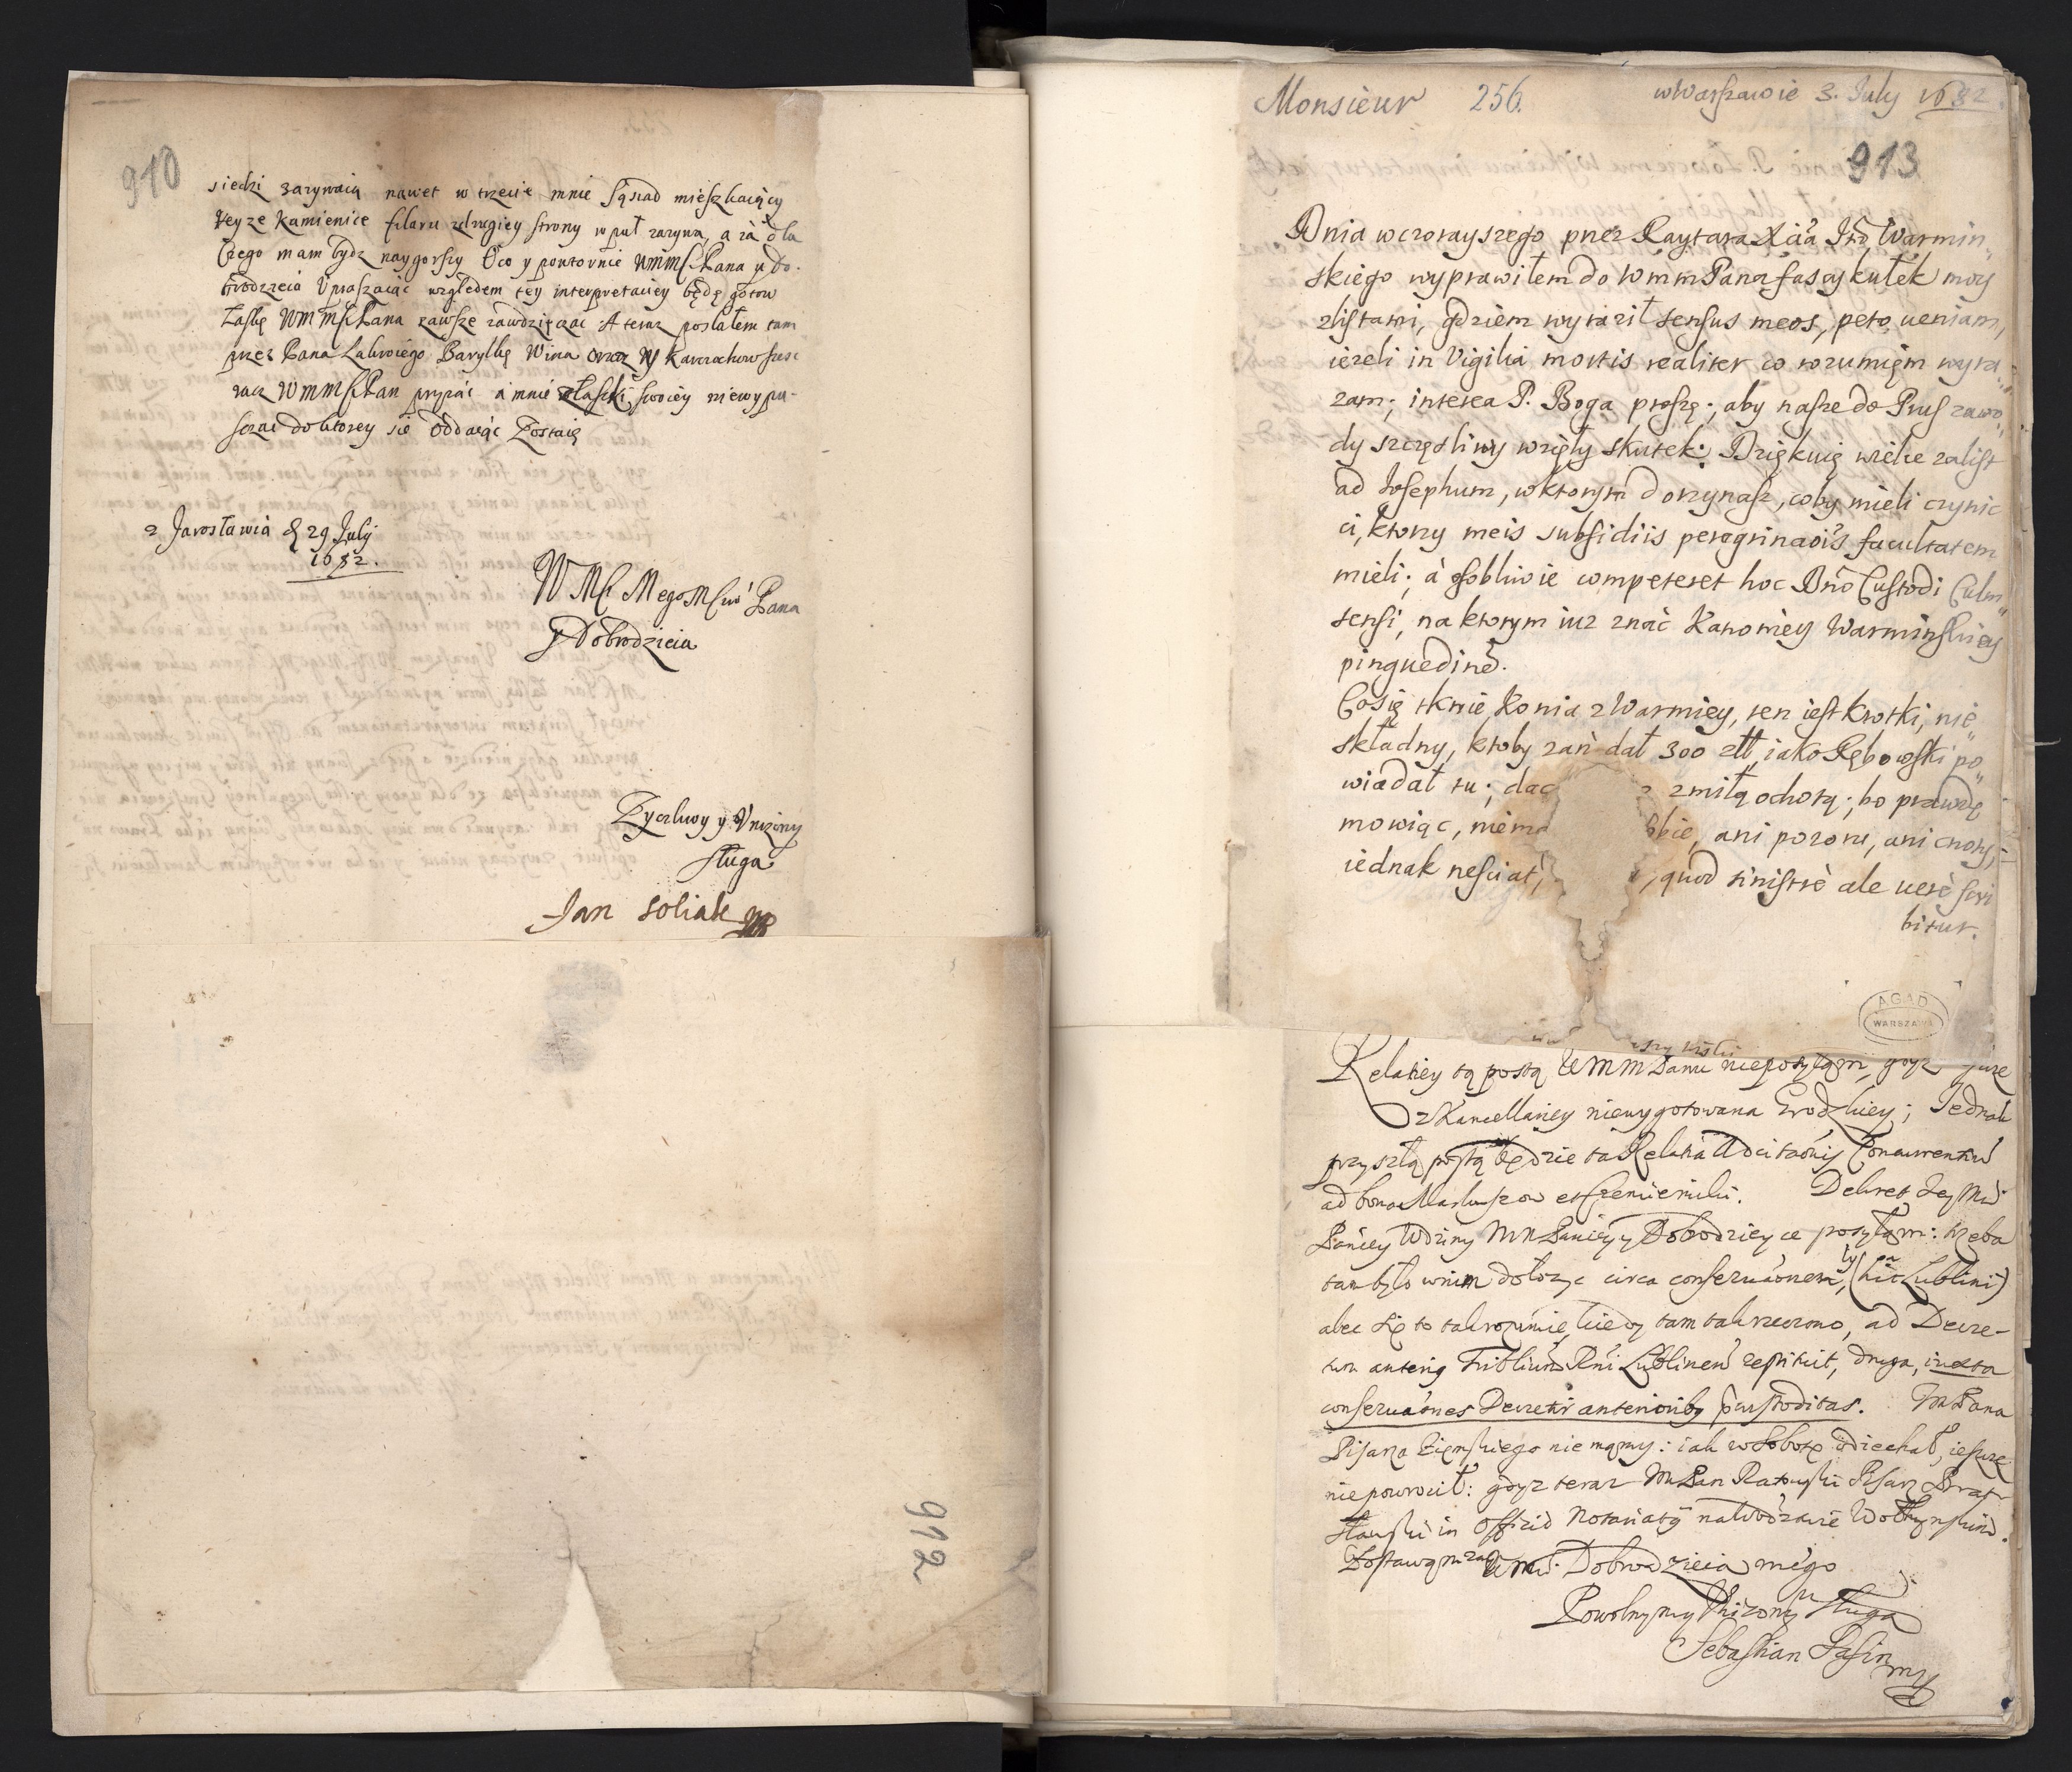 910
siedzi zarywaią nawet w trzecie mnie Sąsiad mieszkaiący
teyze Kamienice filaru zdrugiey strony w puł zarywa, a ia dla
Czego mam bydz naygorszy Oco y powtornie WMMSPana y Do-
brodzieia Upraszaiąc względem tey interpretaciey będę gotow
Łaskę WMMSPana zawsze zawdzięczac A teraz posłałem tam
przez Pana Baryłkę Wina
racz WMMSPan przyiąć a mnie złaski swoiey niewypu-
szczac doktorey się Oddaiąc Zostaię
z Jarosławia d 29 July
1682.
WMS Mego MSwo Pana
y Dobrodzieia
Zyczliwy y Unizony
sługa
Jan Soliak
912
Monsieur 256. w Warszawie 3. July 1682.
913
Dnia wczorayszego przez Raytara Xcia Jeo Warmin-
skiego wyprawiłem do WmmPana fascykułek moy
zlistami, gdziem wyraził sensus meos, peto ueniam,
iezeli in Vigilia mortis realiter co rozumięm wyra-
zam; interea P. Boga proszę; aby nasze do Prus zawo-
dy szczęsliwy wzięły skutek: Dziękuię wielce zalist
ad Josephum, wktorym docynasz, coby mieli czynic
ci, ktorzy meis subsidiis peregrinaois facultatem
mieli; à osobliwie competeret hoc Dno Custodi Culm-
sensi, na ktorym iuz znać Kanoniey Warminskiey
pinguedinē.
Cosię tknie Konia z Warmiey, ten iest krotki, nie-
składny, ktoby zań dał 300 złł, iako Rębowski po-
wiadał tu; dac zmiłą ochotą; bo prawdę
mowiąc, niema sobie, ani pozoru, ani cnoty,
iednak nesciat, quod sinistrè ale uerè scri
bitur.
AGAD
WARSZAWA
Relatiey tą postą WMMPanu nieposyłam, gdyz
z Kancellariey niewygotowana Grodzkiey; Jednak
przyszłą postą będzie ta Relatia
ad bona et Dekret Jey Mci
Paniey MM Paniey y Dobrodzieyce posyłam: trzeba
tam było wnim dołozyc circa conseruaonem, (hic Lublini)
alec się to tak rozumie, kiedy tam tak rzeczono, ad Decre-
tum Lublinen remisit, druga, iuxta
conseruaones Decretis anterioribus custoditas. Pana
Pisarza Ziemskiego nie mamy: iak wSobotę odiechał, ieszcze
niepowrocił: gdyz teraz Pan Pisarz Brac-
ławski in Officio Notariatus
Zostawam za Dobrodzieia mego
Powolnym y Unizonym sługą
Sebastian